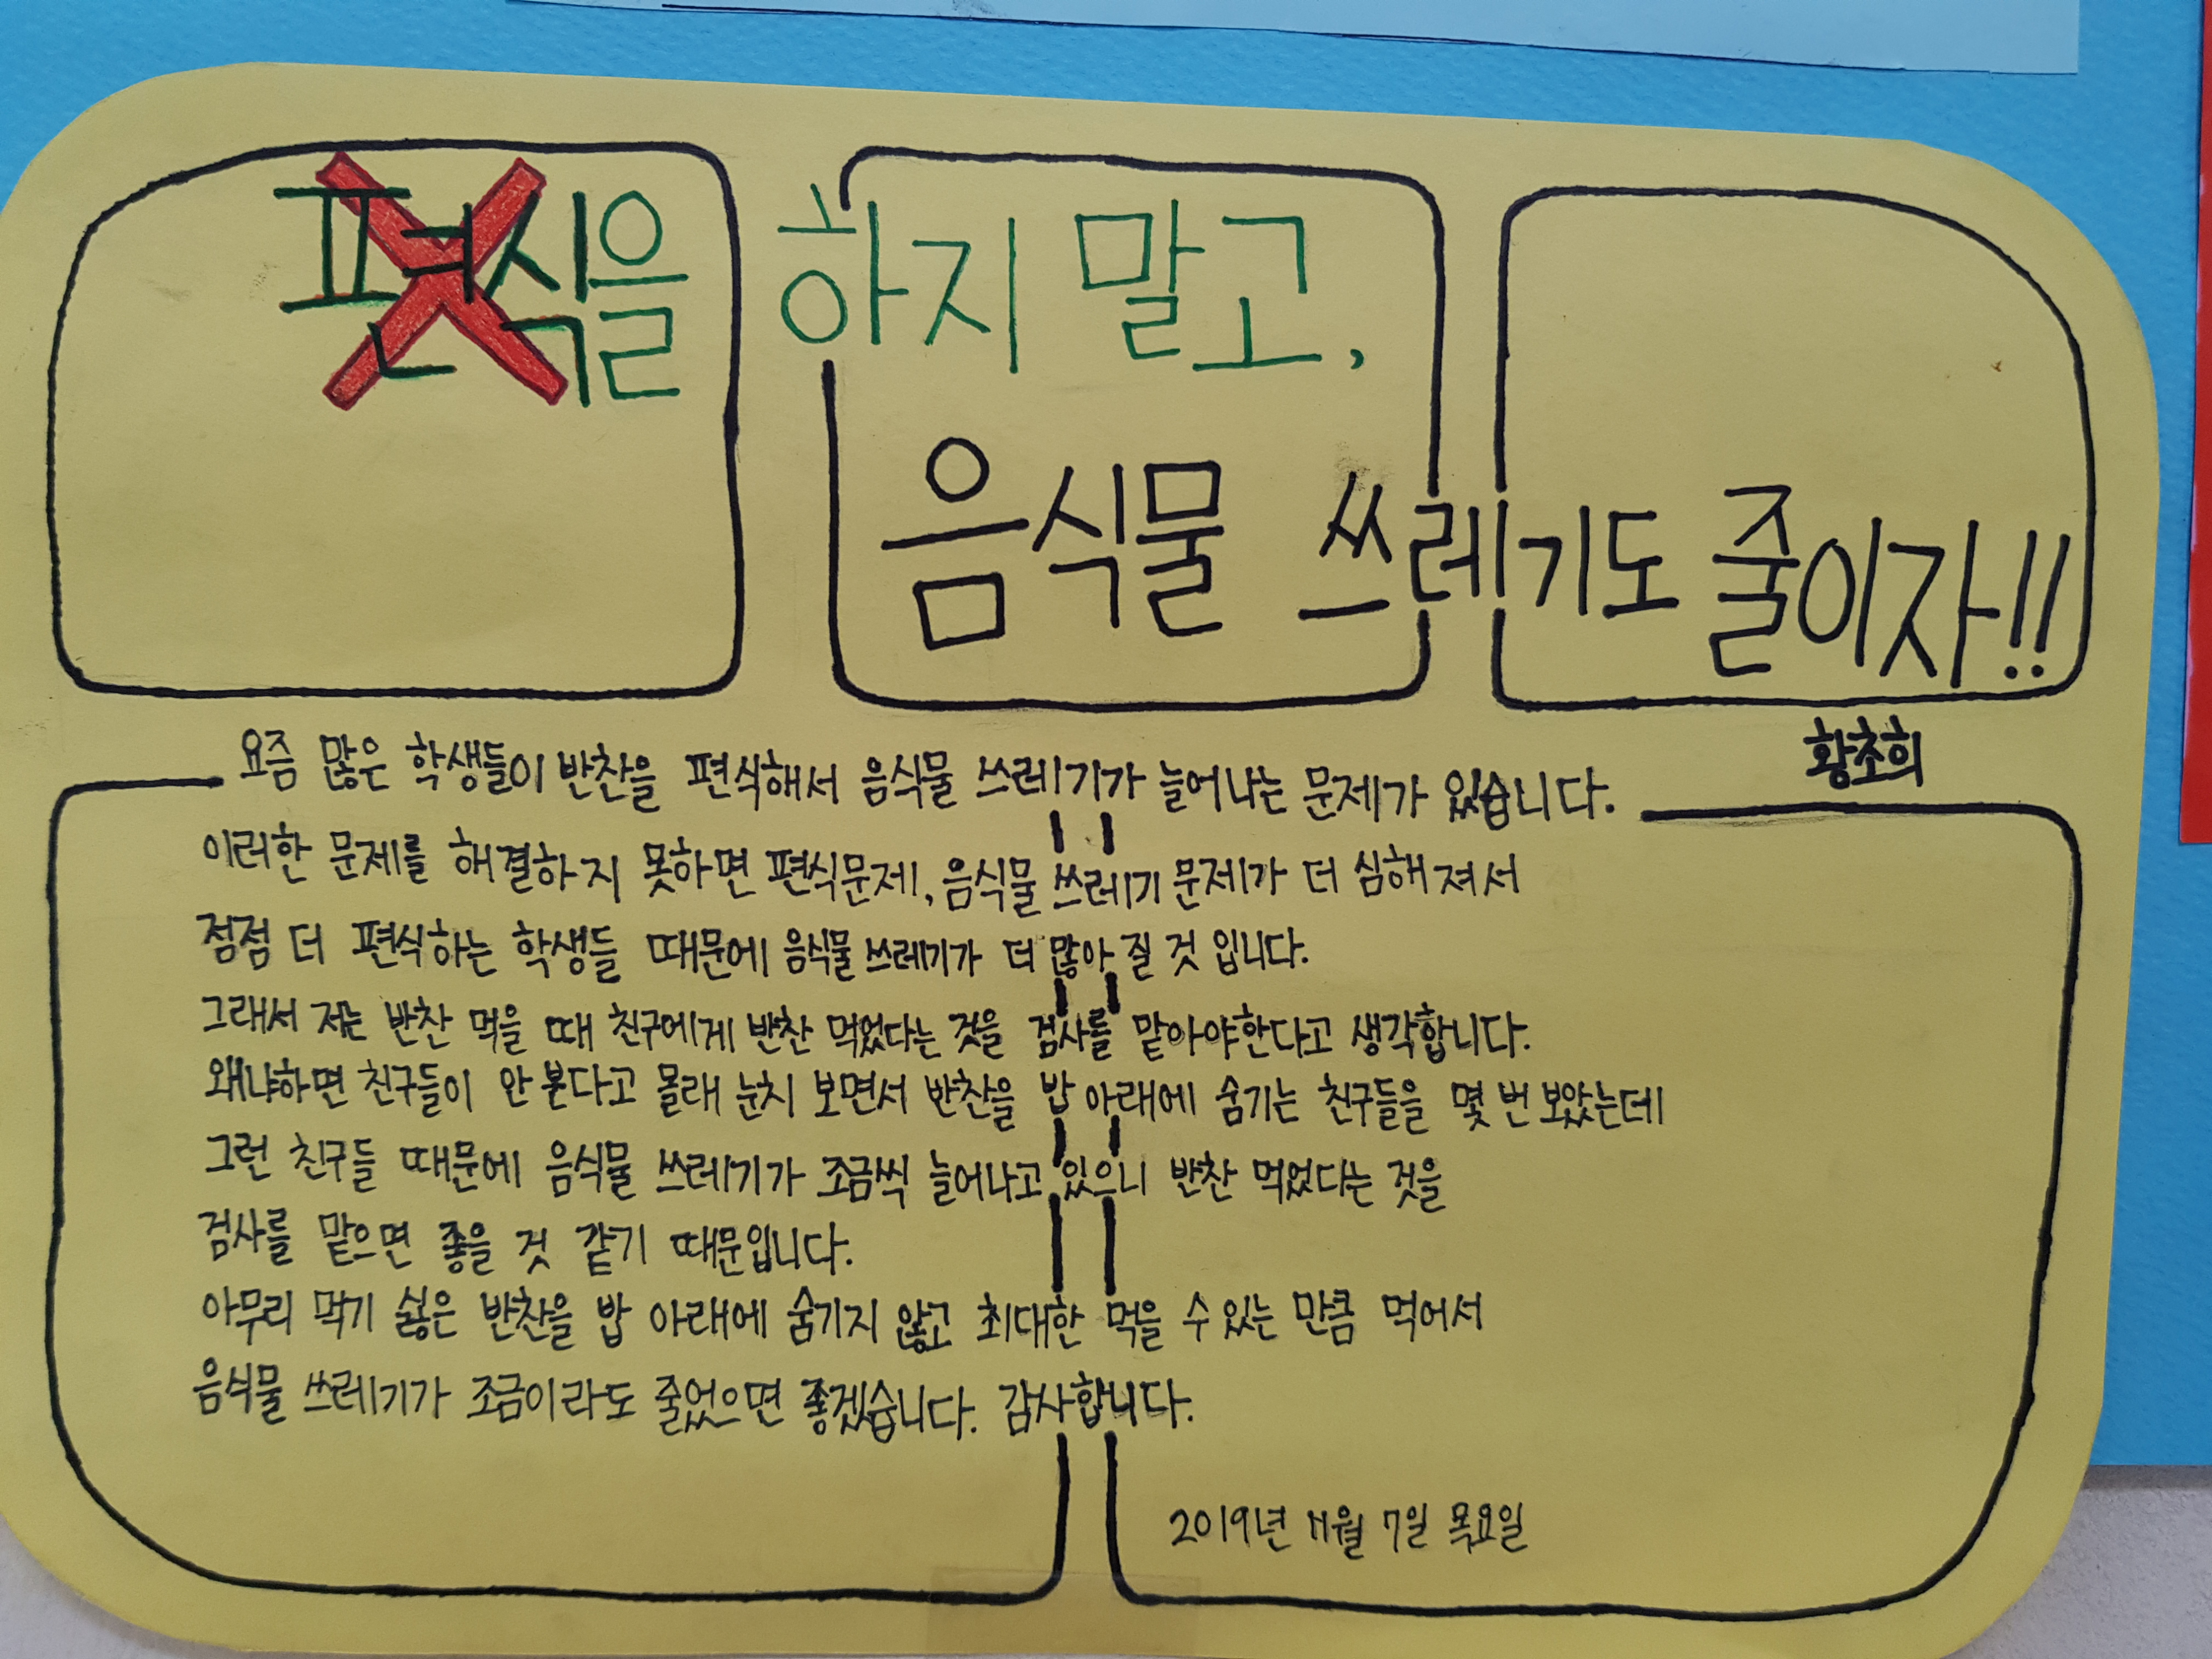 편식을 하지 말고,
음식물 쓰레기도 줄이자!!
황초희
요즘 많은 학생들이 반찬을 편식해서 음식물 쓰레기가 늘어나는 문제가 있습니다.
이러한 문제를 해결하지 못하면 편식문제, 음식물 쓰레기 문제가 더 심해져서
점점 더 편식하는 학생들 때문에 음식물 쓰레기가 더 많아 질 것 입니다.
그래서 저는 반찬 먹을 때 친구에게 반찬 먹었다는 것을 검사를 맡아야한다고 생각합니다.
왜냐하면 친구들이 안 본다고 몰래 눈치 보면서 반찬을 밥 아래에 숨기는 친구들을 몇 번 보았는데
그런 친구들 때문에 음식물 쓰레기가 조금씩 늘어나고 있으니 반찬 먹었다는 것을
검사를 맡으면 좋을 것 같기 때문입니다.
아무리 먹기 싫은 반찬을 밥 아래에 숨기지 않고 최대한 먹을 수 있는 만큼 먹어서
음식물 쓰레기가 조금이라도 줄었으면 좋겠습니다. 감사합니다.
2019년 11월 7일 목요일